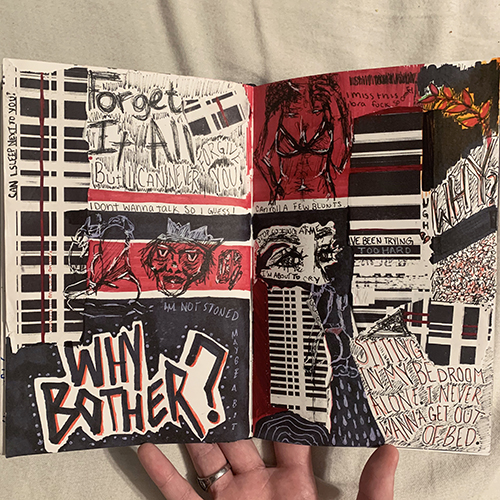 CAN I SLEEP NEXT TO YOU?
Forget
It All
BUT I CAN NEVER
I DONT WANNA TALK SO I GUESS I
IM NOT STONED
WHY
BOTHER?
I miss this
CAN ROLL A FEW BLUNTS
I'M ABOUT TO CRY
UGH
I'VE BEEN TRYING
TOO HARD
WHY
SITTING
IN MY BEDROOM
ALONE I NEVER
WANNA GET OUT
OF BED.